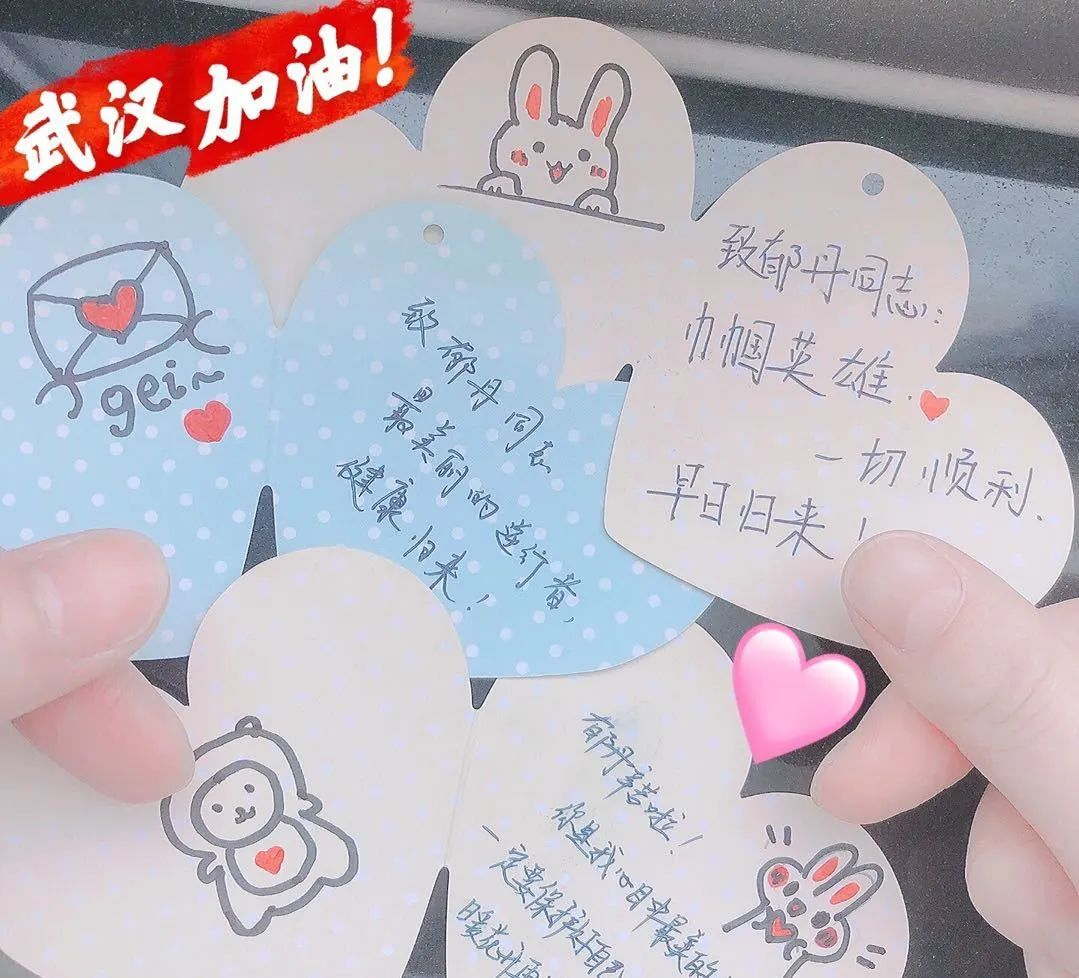 武汉加油!
致郁丹同志:
巾帼英雄.
一切顺利.
早日归来!
gei~
郁丹同志
最美丽的逆行者,
健康归来!
郁丹辛苦啦!
你是我心目中最美的
一定要保护好自
暖花开